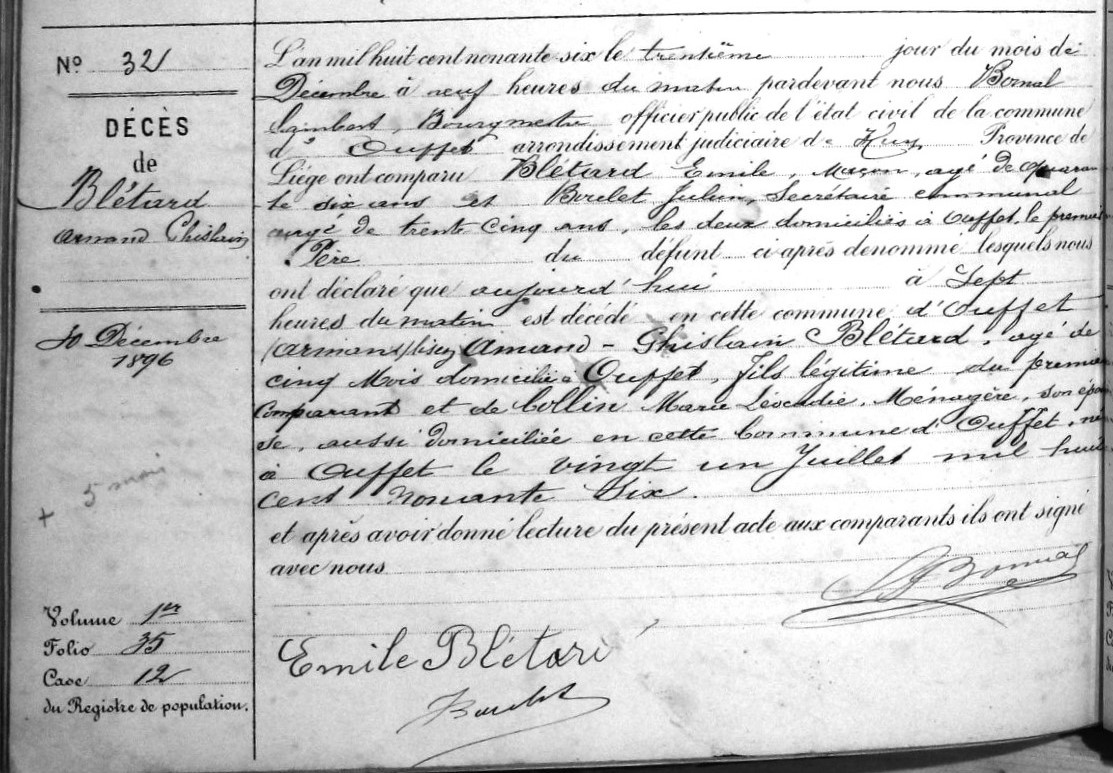 No 32
DÉCÈS
de
Blétard
Armand Ghislain
30 Décembre
1896
+ 5 mois
Volume 1er
Folio 35
Case 12
du Registre de population.
L'an mil huit cent nonante-six le trentième jour du mois de
Décembre à neuf heures du matin pardevant nous Bornal
Lambert, Bourgmestre officier public de l'état civil de la commune
d' Ouffet arrondissement judiciaire de Huy Province de
Liége ont comparu Blétard Emile, Maçon, agé de quaran
te six ans et Julien, Secrétaire communal
agé de trente cinq ans, les deux domiciliés à Ouffet, le premier
Père du défunt ci-après dénommé lesquels nous
ont déclaré que aujourd'hui à Sept
heures du matin est décédé en cette commune d'Ouffet
(Armand) lisez Amand - Ghislain Blétard, agé de
cinq Mois domicilié à Ouffet, fils légitime du premier
Comparant et de Collin Marie Léocadie, Ménagère, son épou
se, aussi domiciliée en cette Commune d'Ouffet, né
à Ouffet le vingt un Juillet mil huit
cent nonante Six.
et après avoir donné lecture du présent acte aux comparants ils ont signé
avec nous
Bornal
Emile Blétard